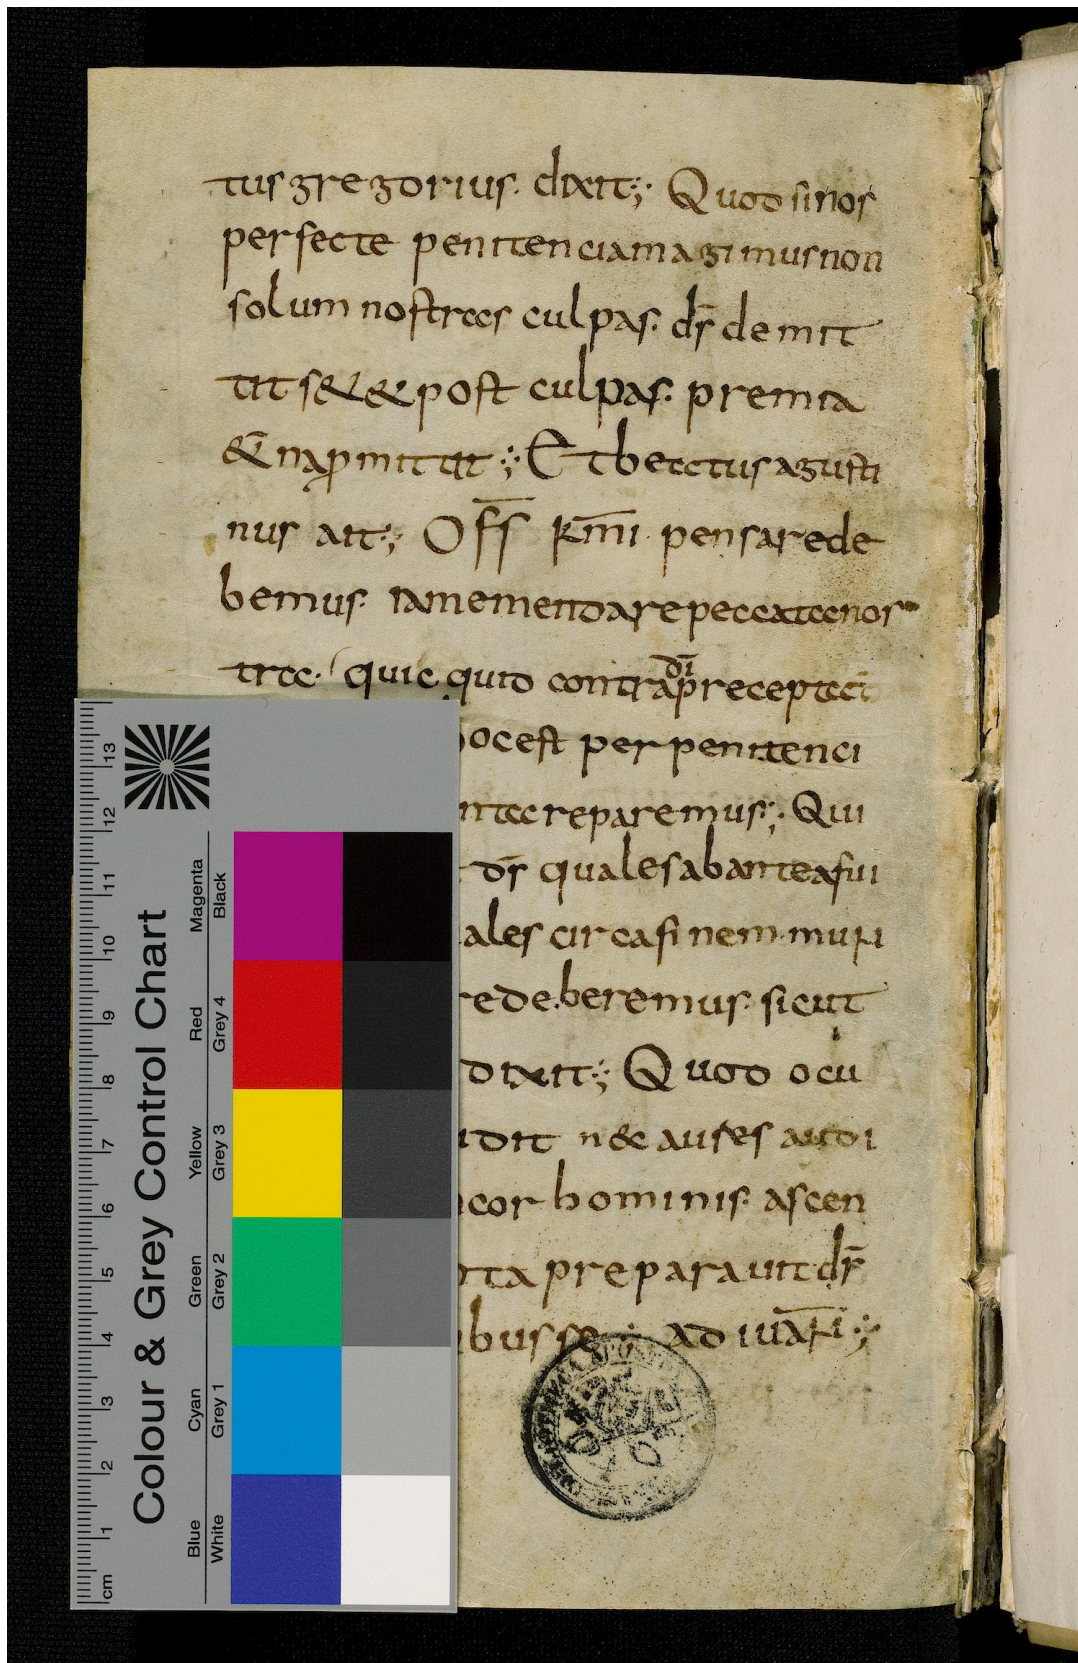 tus gregorius. dixit; Quod si nos
perfecte penitenciam agimus non
solum nostras culpas. d̄s demit
tit s& & post culpas. premia
&̄na ꝓmittit; Et beatus agusti
nus ait; Of̄s k̄mi pensare de
bemus. tam emendare peccata nos
tra. quic quid contra d̄i precepta
oc est per penitenci
nta reparemus; Qui
d̄s quales ab antea fui
ales circa finem. muri
rede beremus. sicut
dixit; Quod ocu
idit n& aures audi
cor hominis. ascen
ta preparauit d̄s
ibus se; ad iuāri;
Colour & Grey Control Chart
Blue Cyan Green Yellow Red Magenta
White Grey 1 Grey 2 Grey 3 Grey 4 Black
cm 1 2 3 4 5 6 7 8 9 10 11 12 13